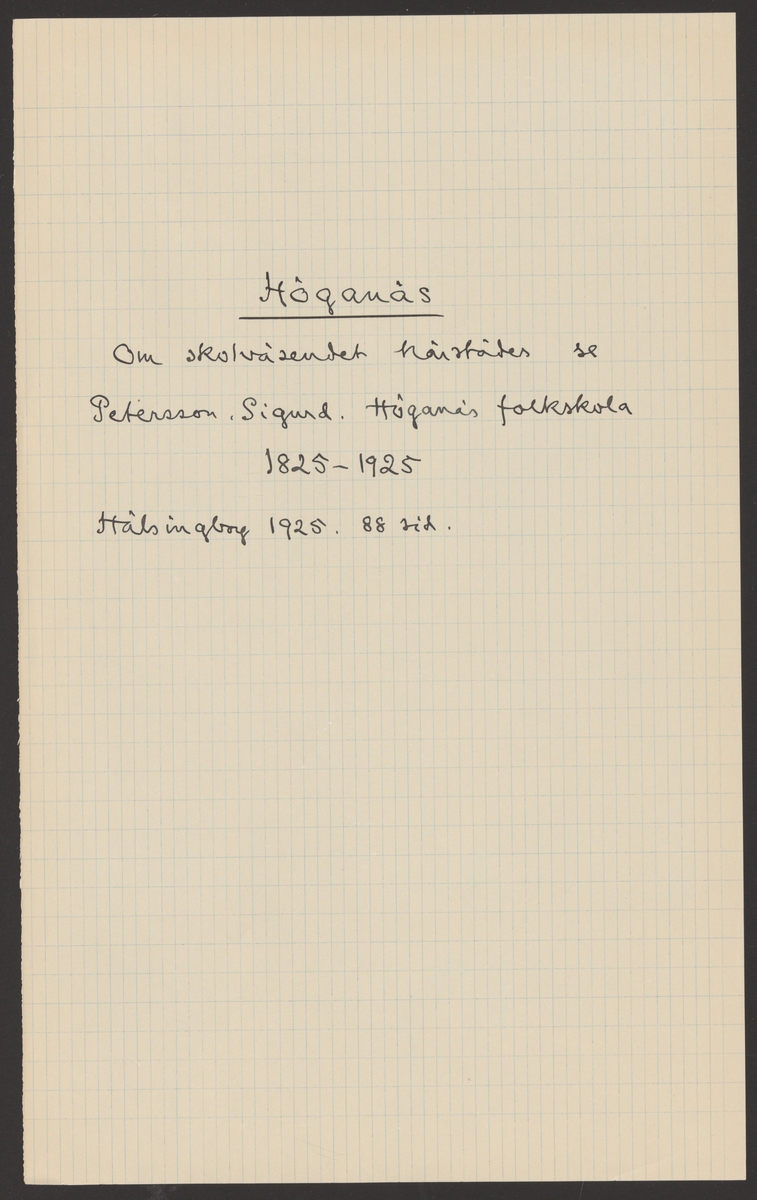 Höganäs
Om skolväsendet härstädes se
Petersson, Sigurd. Höganäs folkskola
1825-1925
Hälsingborg 1925. 88 sid.